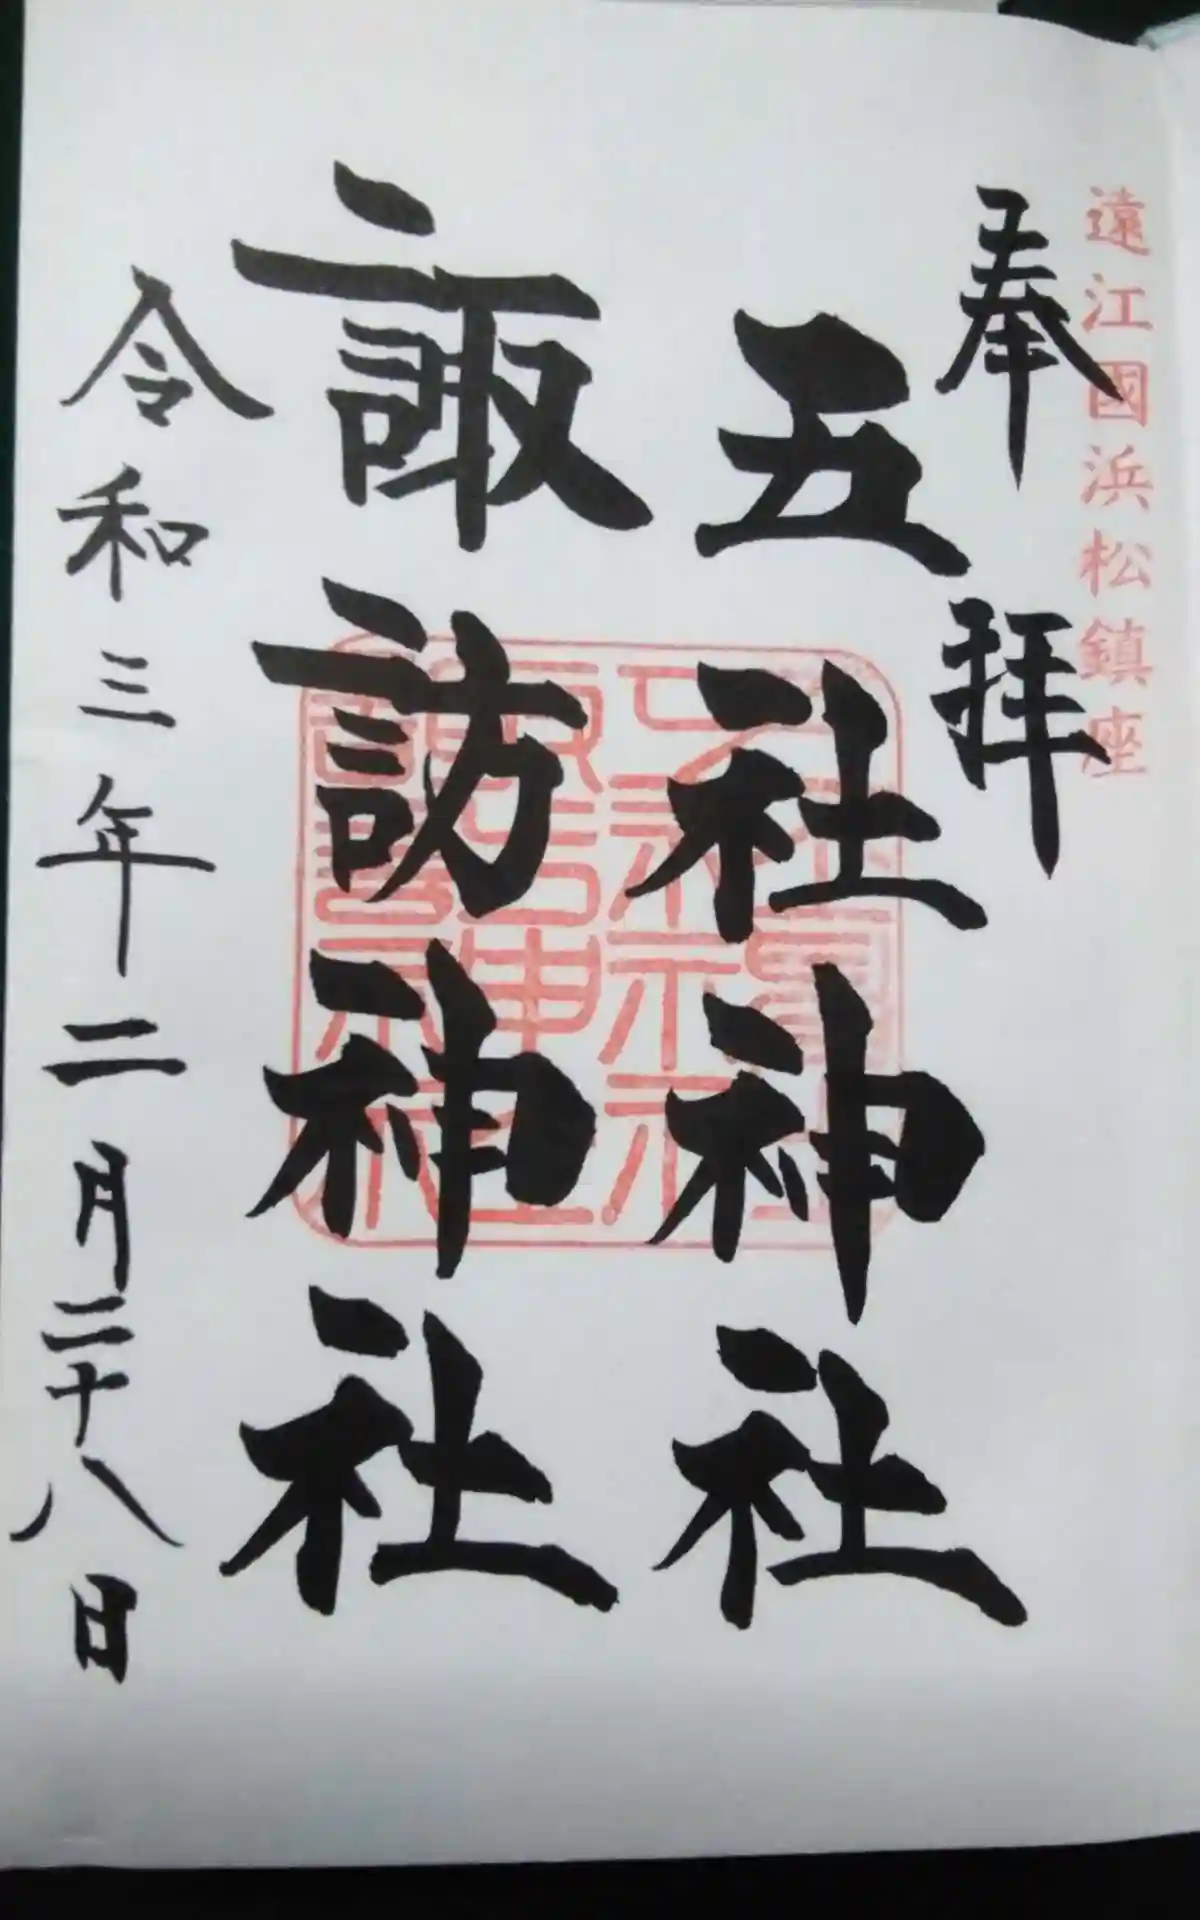 遠江國浜松鎮座
奉拝
五社神社
諏訪神社
令和三年二月二十八日